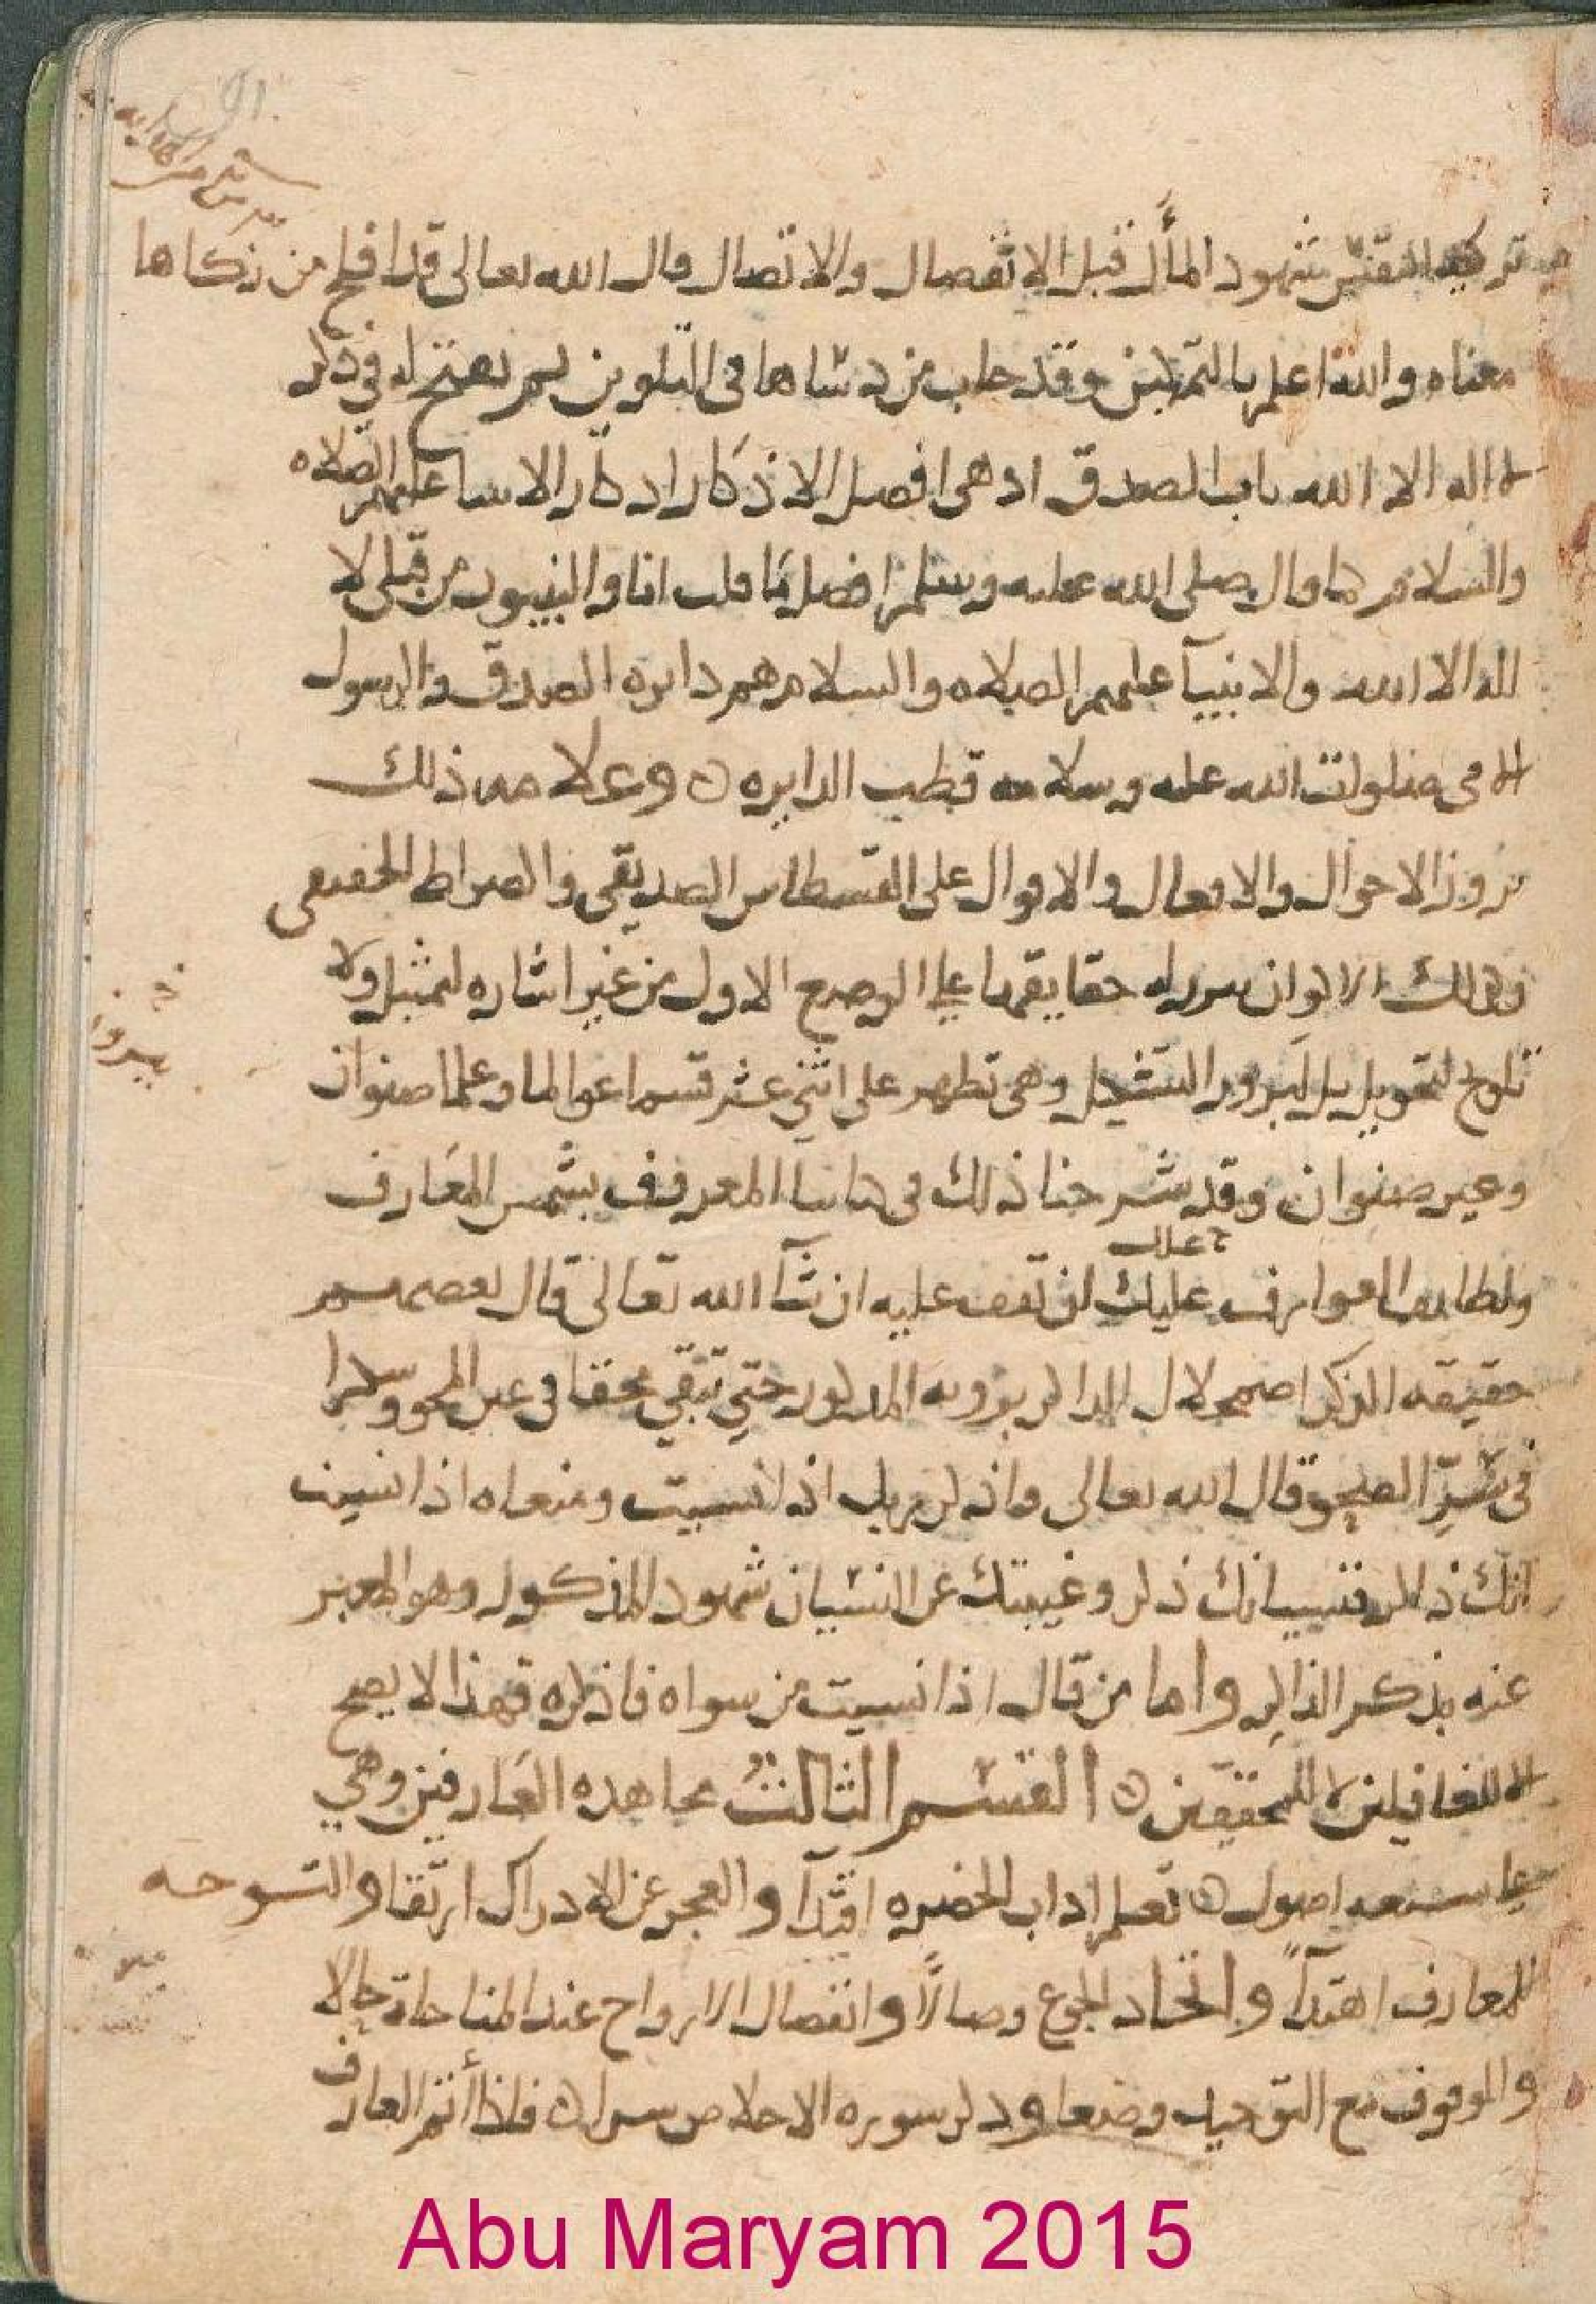 تزكية النفس شهود المآل قبل الانفصال والاتصال قال الله تعالى قد افلح من زكاها
معناه والله اعلم بالتمكين وقد خاب من دساها في التلوين لم يفتح له في ذكر
لا اله الا الله باب الصدق اذ هي افضل الاذكار اذكار الانبيا عليهم الصلاه
والسلام كما قال صلى الله عليه وسلم افضل ما قلت انا والنبيون من قبلى لا
اله الا الله والانبيآ عليهم الصلاه والسلام هم دايره الصدق والرسول
الامي صلوات الله عليه وسلامه قطب الدايره وعلامه ذلك
بروز الاحوال والافعال والاقوال على القسطاس الصديقى والصراط الحقيقى
وهنالك الاكوان حقايقها على الوضع الاول من غير اشاره لتمثيل ولا
تلويح لتحويل بل لبروز التشكيل وهي تظهر على اثني عشر قسما عوالما وعلما صنوان
وغير صنوان وقد شرحنا ذلك في كتابنا المعروف بشمس المعارف
ولطايف العوارف عليك ان تقف عليه ان شآ الله تعالى قال بعضهم
حقيقه الذكر اضمحلال الذاكر برويه المذكور حتى تبقي محقا في عين المحو وسكرا
في سرّ الصحو قال الله تعالى واذكر ربك اذا نسيت ومعناه اذا نسيت
انك ذاكر فنسيانك ذكر وغيبتك عن النسيان شهود المذكور وهو المعبر
عنه بذكر الذاكر واما من قال اذا نسيت من سواه فاذكره فهذا لا يصح
الا للغافلين لا للمحققين القسم الثالث مجاهده العارفين وهي
على سبعه اصول تعلم اداب الحضره اقتدآ والعجز عن الادراك ارتقا والتوجه
للمعارف اهتدآ واتحاد الجمع وصالاً وانفصال الارواح عند المناجاة حالا
والوقوف مع التوحيد وضعا وذكر سوره الاخلاص سرا فاذا أتم العارف
Abu Maryam 2015